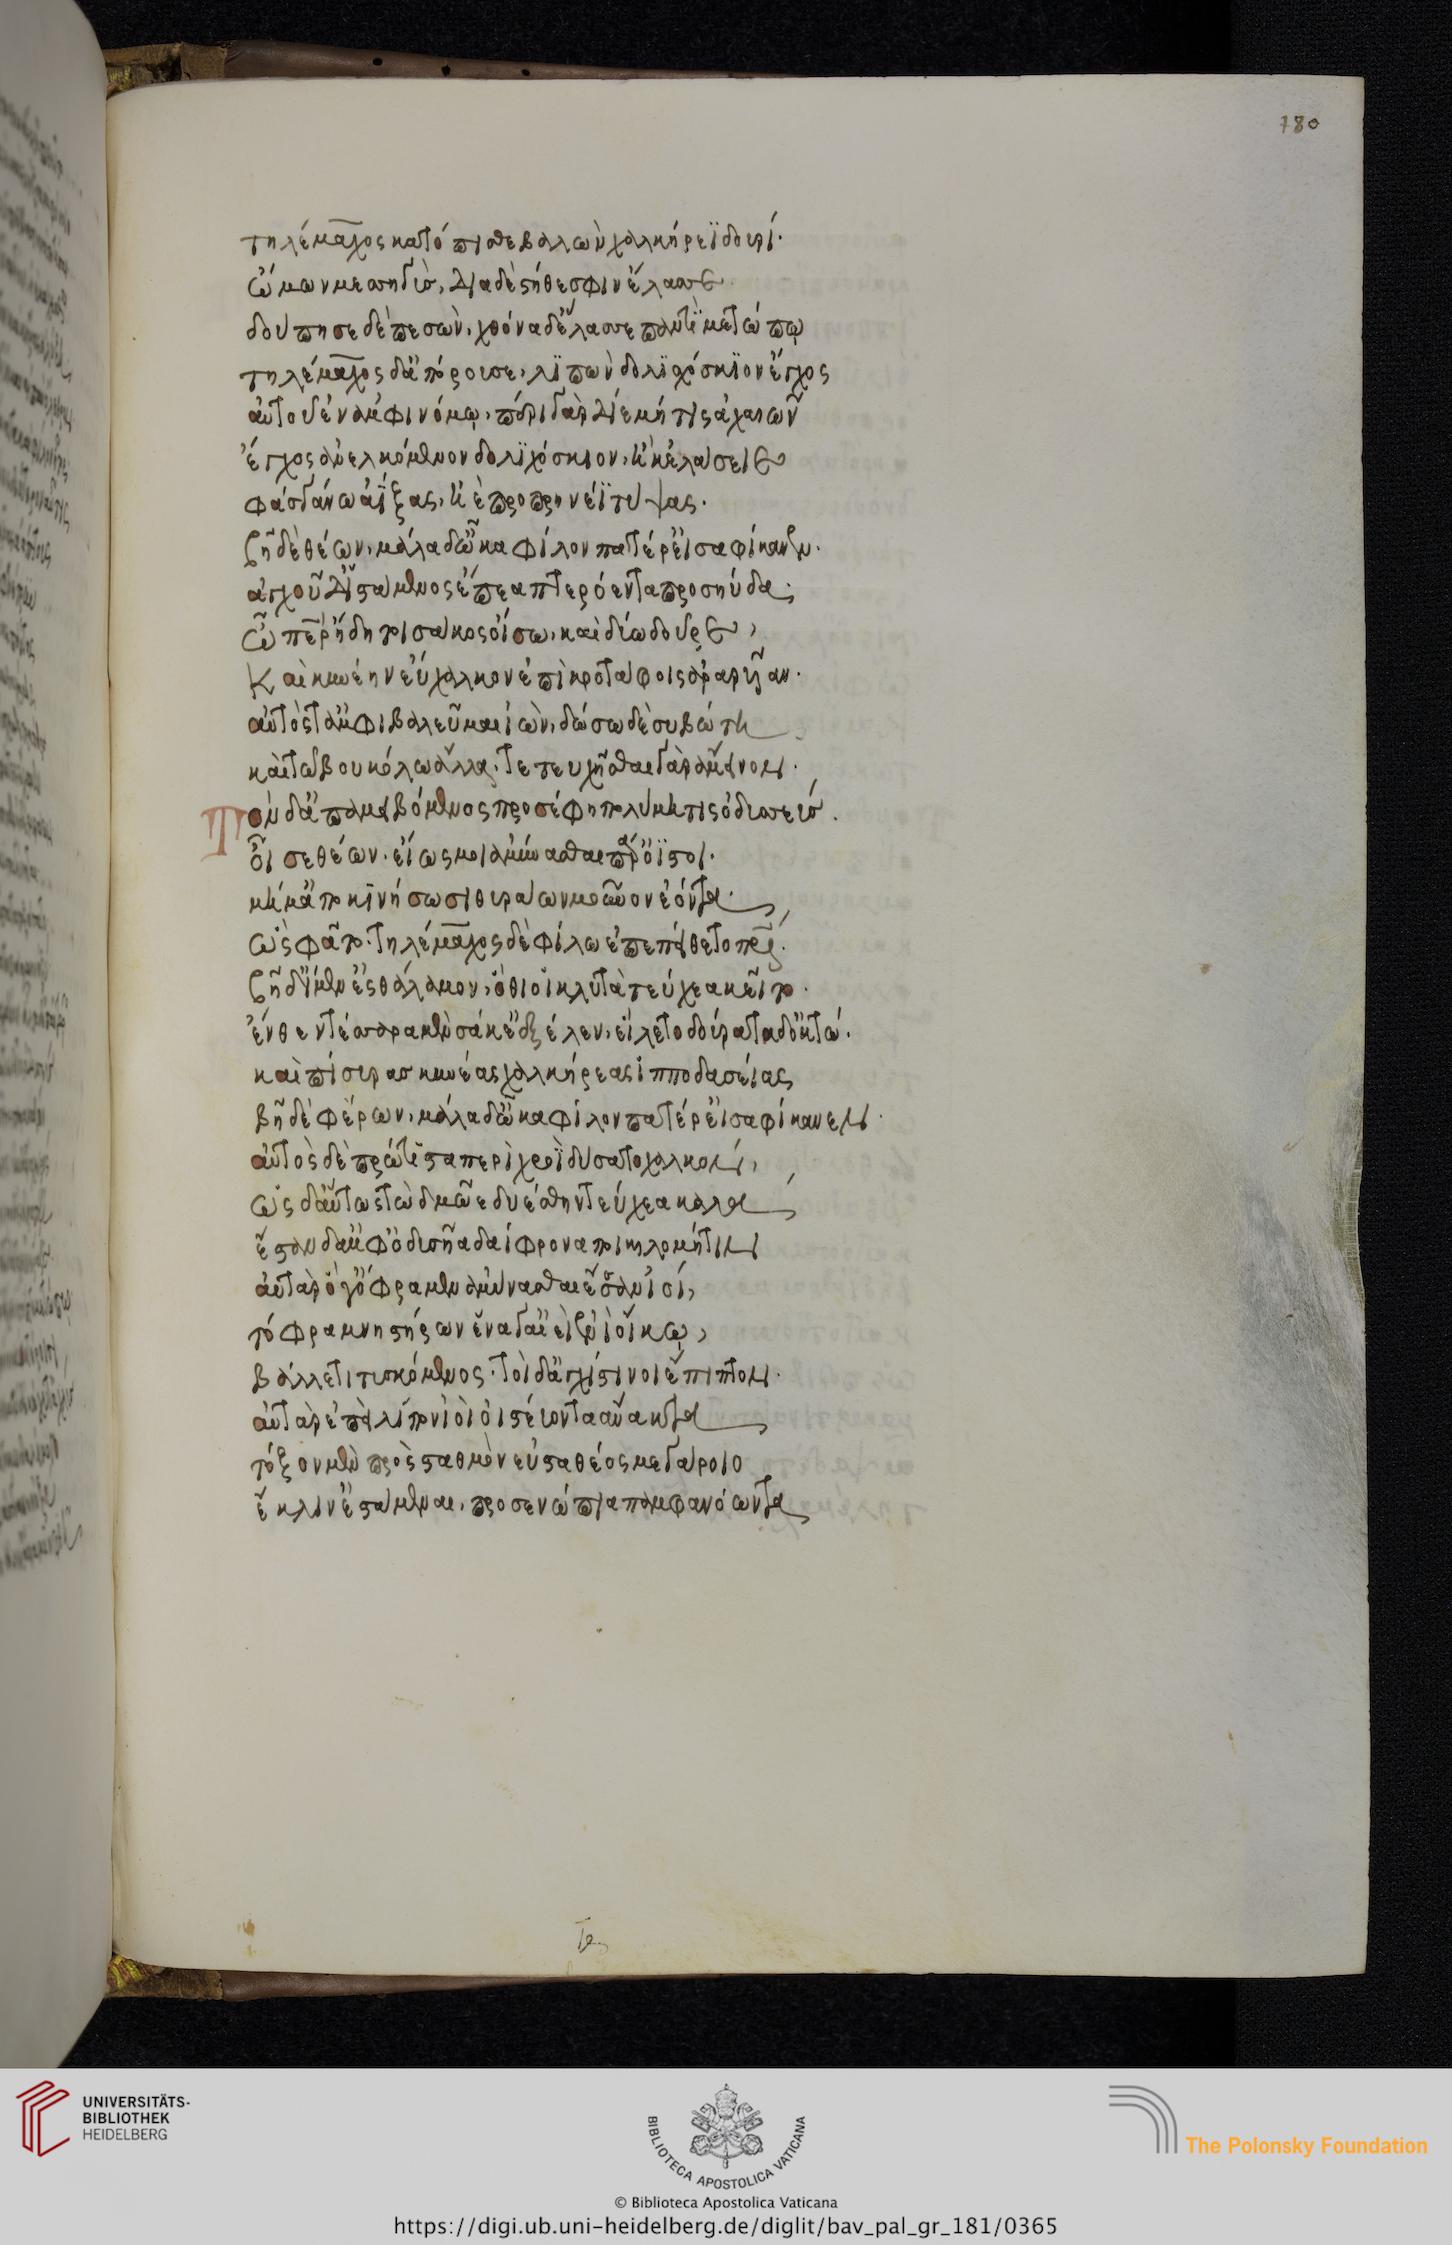 180
τηλέμαχος κατόπισθε βαλὼν χαλκήρεϊ δουρί·
ὤμων μεσσηγὺς, διὰ δὲ στήθεσφιν ἔλασσε
δούπησε δὲ πεσὼν, χθόνα δ' ἤλασε παντὶ μετώπω
τηλέμαχος δ' ἀπόρουσε, λιπὼν δολιχόσκιον ἔγχος
αὐτοῦ ἐν ἀμφινόμω, περὶ γὰρ δίε μή τις ἀχαιῶν
ἔγχος ἀνελκόμενον δολιχόσκιον, ἢ ἐλάσειε
φασγάνω ἀΐξας, ἠὲ προπρηνέϊ τύψας.
βῆ δὲ θέων, μάλα δ' ὦκα φίλον πατέρ' εἰσαφίκανεν.
ἀγχοῦ δ' ἱστάμενος ἔπεα πτερόεντα προσηύδα·
ὦ πάτερ ἤδη τοι σάκος οἴσω, καὶ δύω δοῦρε,
καὶ κυνέην εὔχαλκον ἐπὶ κροτάφοις ἀραρυῖαν.
αὐτός τ' ἀμφιβαλεῦμαι ἰὼν, δώσω δὲ συβώτη
καὶ τῶ βουκόλω ἄλλα. τετευχῆσθαι γὰρ ἄμεινον.
Τὸν δ' ἀπαμειβόμενος προσέφη πολύμητις ὀδυσσεύς.
οἶσε θέων. εἵως μοι ἀμύνασθαι πάρ' ὀϊστοί.
μή μ' ἀποκινήσωσι θυράων μοῦνον ἐόντα.
ὣς φάτο. τηλέμαχος δὲ φίλω ἐπεπείθετο πατρί.
βῆ δ' ἴμεν ἐς θάλαμον, ὅθι οἱ κλυτὰ τεύχεα κεῖτο.
ἔνθεν τέσσαρα μὲν σάκε' ἔξελεν, εἵλετο δούρατα δ' ὀκτώ.
καὶ πίσυρας κυνέας χαλκήρεας ἱπποδασείας
βῆ δὲ φέρων, μάλα δ' ὦκα φίλον πατέρ' εἰσαφίκανεν.
αὐτὸς δὲ πρώτιστα περὶ χροῒ δύσατο χαλκόν,
ὣς δ' αὔτως τὼ δμῶε δυέσθην τεύχεα καλὰ
ἔσταν δ' ἀμφ' ὀδυσῆα δαΐφρονα ποικιλομήτην
αὐτὰρ ὅγ' ὄφρα μὲν ἀμύνασθαι ἔσαν ἰοί,
τόφρα μνηστήρων ἕνα γ' αἰεὶ ὧ ἐνὶ οἴκω,
βάλλε τιτυσκόμενος. τοὶ δ' ἀγχιστῖνοι ἔπιπτον.
αὐτὰρ ἐπεὶ λίπον ἰοὶ ὀϊστεύοντα ἄνακτα
τόξον μὲν πρὸς σταθμὸν εὐσταθέος μεγάροιο
ἔκλιν' ἑστάμεναι, προσενώπια παμφανόωντα
UNIVERSITÄTS-
BIBLIOTHEK
HEIDELBERG
BIBLIOTECA APOSTOLICA VATICANA
The Polonsky Foundation
© Biblioteca Apostolica Vaticana
https://digi.ub.uni-heidelberg.de/diglit/bav_pal_gr_181/0365